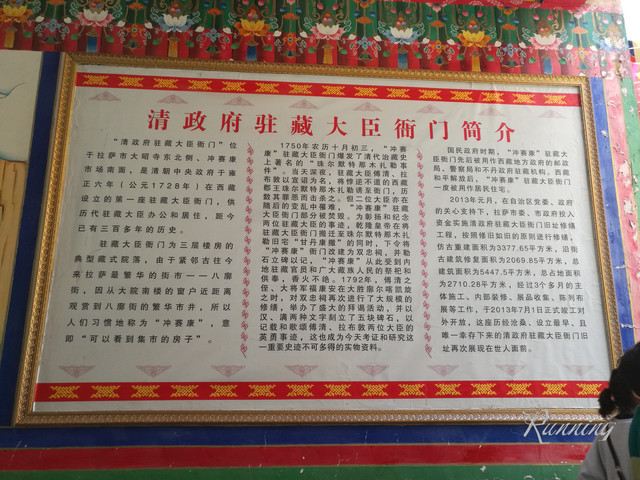 清政府驻藏大臣衙门简介
"清政府驻藏大臣衙门"位
于拉萨市大昭寺东北侧，冲赛康
市场南面，是清朝中央政府于雍
正六年（公元1728年）在西藏
设立的第一座驻藏大臣衙门，供
历代驻藏大臣办公和居住，距今
已有三百多年的历史。
驻藏大臣衙门为三层楼房的
典型藏式院落，由于紧邻古往今
来拉萨最繁华的街市——八廓
街，因从大院南楼的窗户近距离
观赏到八廓街的繁华市井，所以
人们习惯地称为"冲赛康"，意
即"可以看到集市的房子"。
1750年农历十月初三，"冲赛
康"驻藏大臣衙门爆发了清代治藏史
上著名的"珠尔默特那木扎勒事
件"。当天深夜，驻藏大臣傅清、拉
布敦以宣诏为名，将悖逆不道的西藏
郡王珠尔默特那木扎勒诱至衙门，历
数其罪恶而击杀之。但二位大臣亦在
随后的变乱中罹难，"冲赛康"驻藏
大臣衙门部分被焚毁。为彰扬和纪念
两位驻藏大臣的事迹，乾隆皇帝在将
驻藏大臣衙门搬迁至珠尔默特那木扎
勒旧宅"甘丹康撒"的同时，下令将
"冲赛康"衙门改建为双忠祠，并勒
石立碑以记，"冲赛康"从此受到内
地驻藏官员和广大藏族人民的祭祀和
供奉，香火不绝。1792年，傅清之
侄、大将军福康安在大胜廓尔喀凯旋
之时，对双忠祠再次进行了大规模的
修缮，举办了盛大的拜谒活动，并以
汉、满两种文字刻立了五块碑石，以
记载和歌颂傅清、拉布敦两位大臣的
英勇事迹，这也成为今天考证和研究这
一重要史迹不可多得的实物资料。
国民政府时期，"冲赛康"驻藏大
臣衙门先后被用作西藏地方政府的邮政
局、警察局和不丹政府驻藏机构。西藏
和平解放后，"冲赛康"驻藏大臣衙门
一度被用作居民住宅。
2013年元月，在自治区党委、政府
的关心支持下，拉萨市委、市政府投入
资金实施清政府驻藏大臣衙门旧址修缮
工程，按照修旧如旧的原则进行修缮，
仿古重建面积为3377.65平方米，沿街
古建筑修复面积为2069.85平方米，总
建筑面积为5447.5平方米，总占地面积
为2710.28平方米，经过3个多月的主
体施工、内部装修、展品收集、陈列布
展等工作，于2013年7月1日正式竣工对
外开放，这座历经沧桑、设立最早、且
唯一幸存下来的清政府驻藏大臣衙门旧
址再次展现在世人面前。
Running